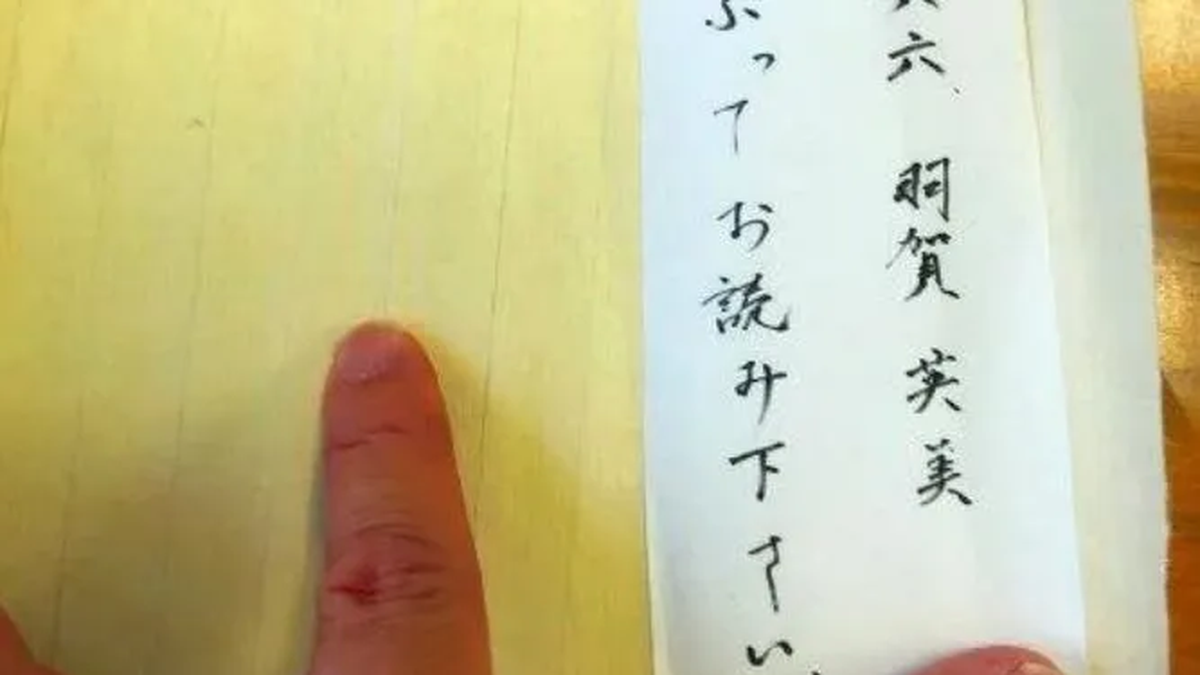 六、羽賀 英美
ぶってお読み下さい